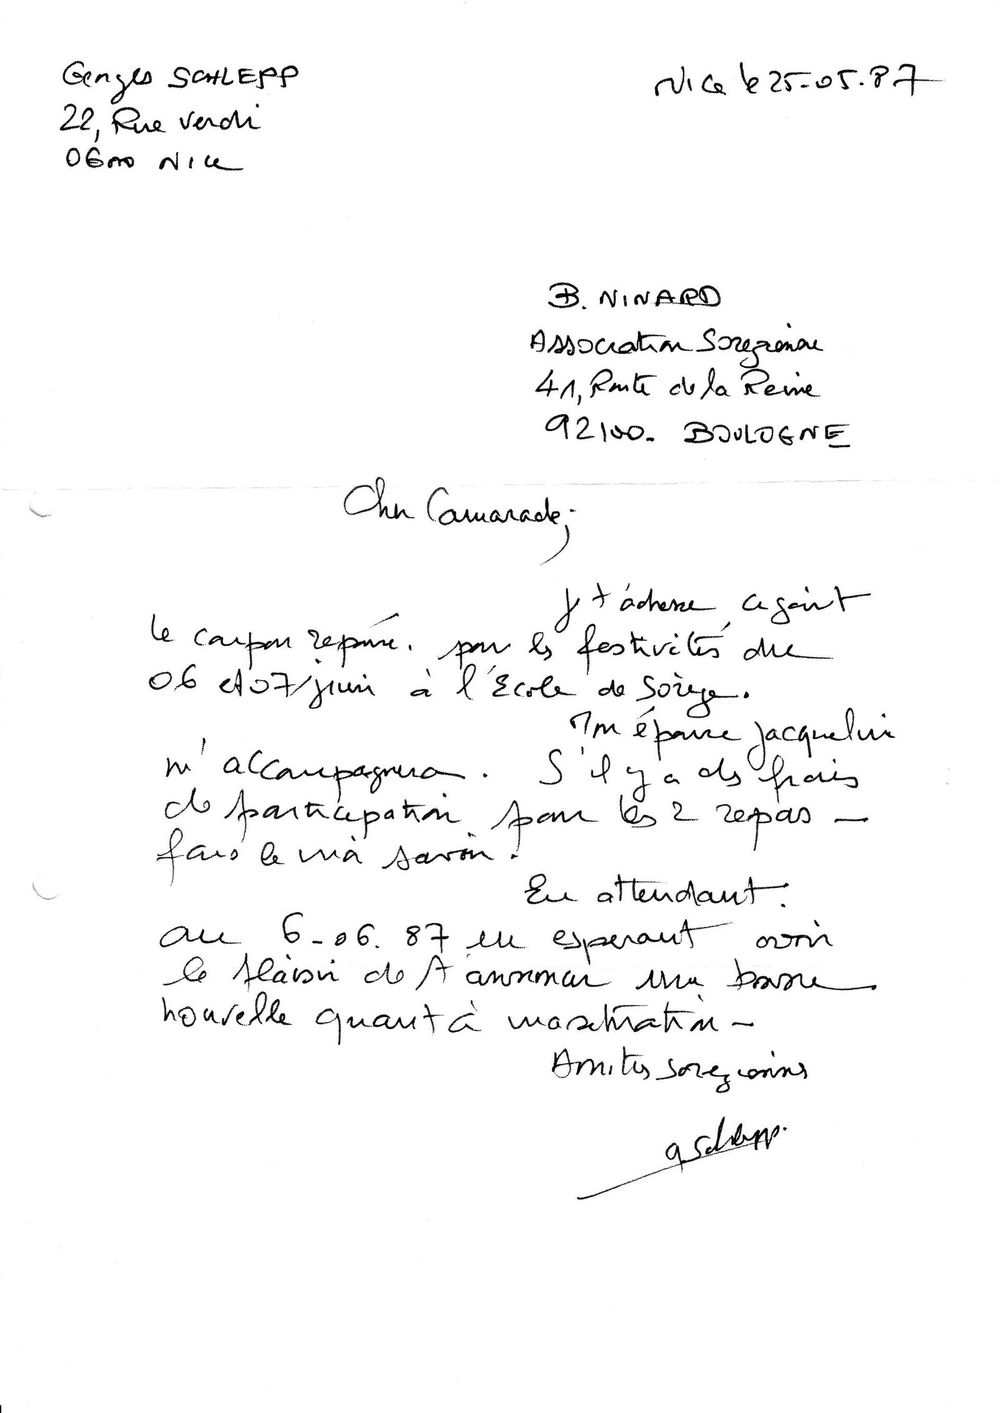 Georges SCHLEPP
22, Rue Verdi
06000 NICE
Nice le 25-05.87
B. NINARD
Association Sorezienne
41, Route de la Reine
92100. BOULOGNE
Cher Camarade,
Je t'adresse ci joint
le coupon réponse. pour les festivités du
06 et 07 juin à l'Ecole de Sorèze.
Mon épouse Jacqueline
m'accompagnera. S'il y a des frais
de participation pour les 2 repas –
fais le moi savoir.
En attendant.
au 6-06.87 en esperant avoir
le plaisir de t'annoncer une bonne
nouvelle quant à
Amitiés soreziennes
G Schlepp.